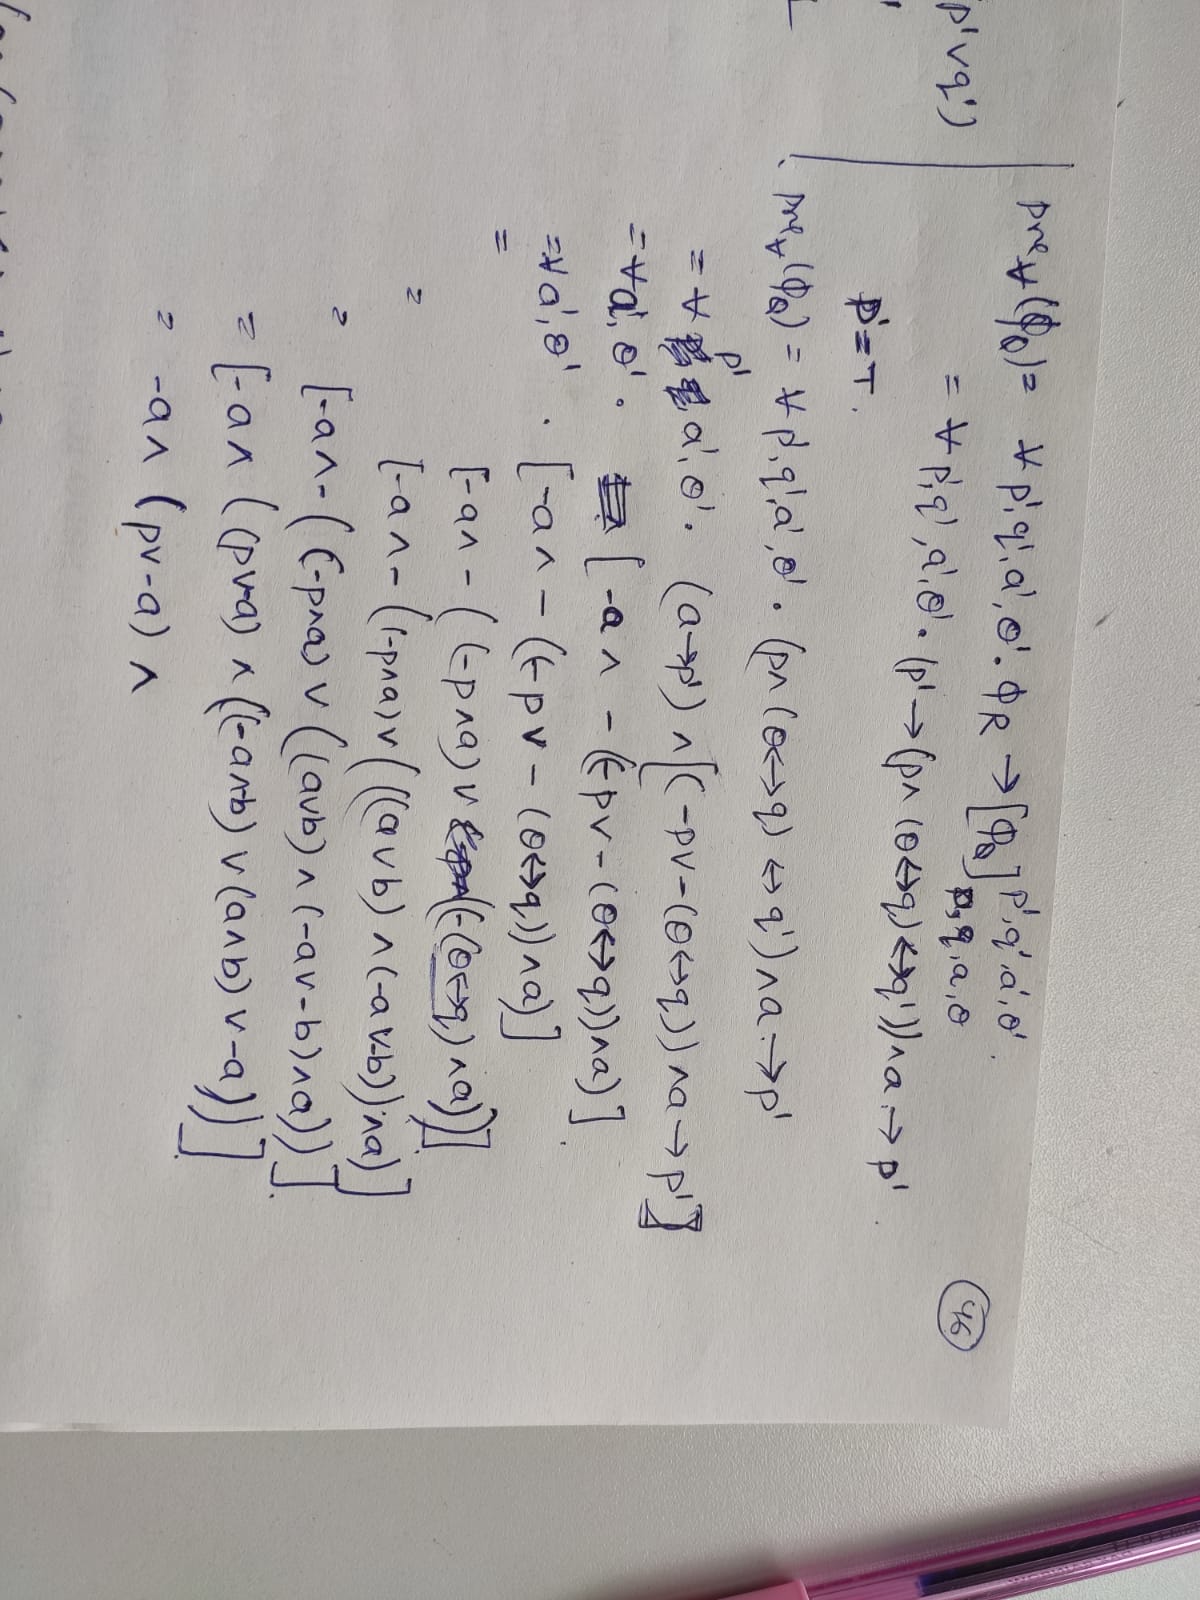 p'∨q')
pre∀(ϕQ) = ∀ p',q',a',θ'. ϕR → [ϕQ] p',q',a',θ'.
p,q,a,θ
= ∀ p',q',a',θ'. (p' → (p∧(θ↔q)↔q'))∧a → p'
p' = T.
pre∀(ϕQ) = ∀ p',q',a',θ'. (p∧(θ↔q) ↔ q')∧a → p'
= ∀ p' a',θ'. (a→p') ∧ [(-p∨-(θ↔q))∧a → p']
= ∀a',θ'. [-a ∧ -((-p∨-(θ↔q))∧a)]
= ∀a',θ'. [-a ∧ -((-p∨-(θ↔q))∧a)]
= [-a∧ -((-p∧a)∨((-(θ↔q)∧a))]
= [-a∧ -((-p∧a)∨(((a∨b)∧(-a∨-b))∧a)]
= [-a∧ -((-p∧a)∨((a∨b)∧(-a∨-b)∧a))].
= [-a∧((p∨-a)∧((-a∧-b)∨(a∧b)∨-a))].
= -a∧(p∨-a)∧
46